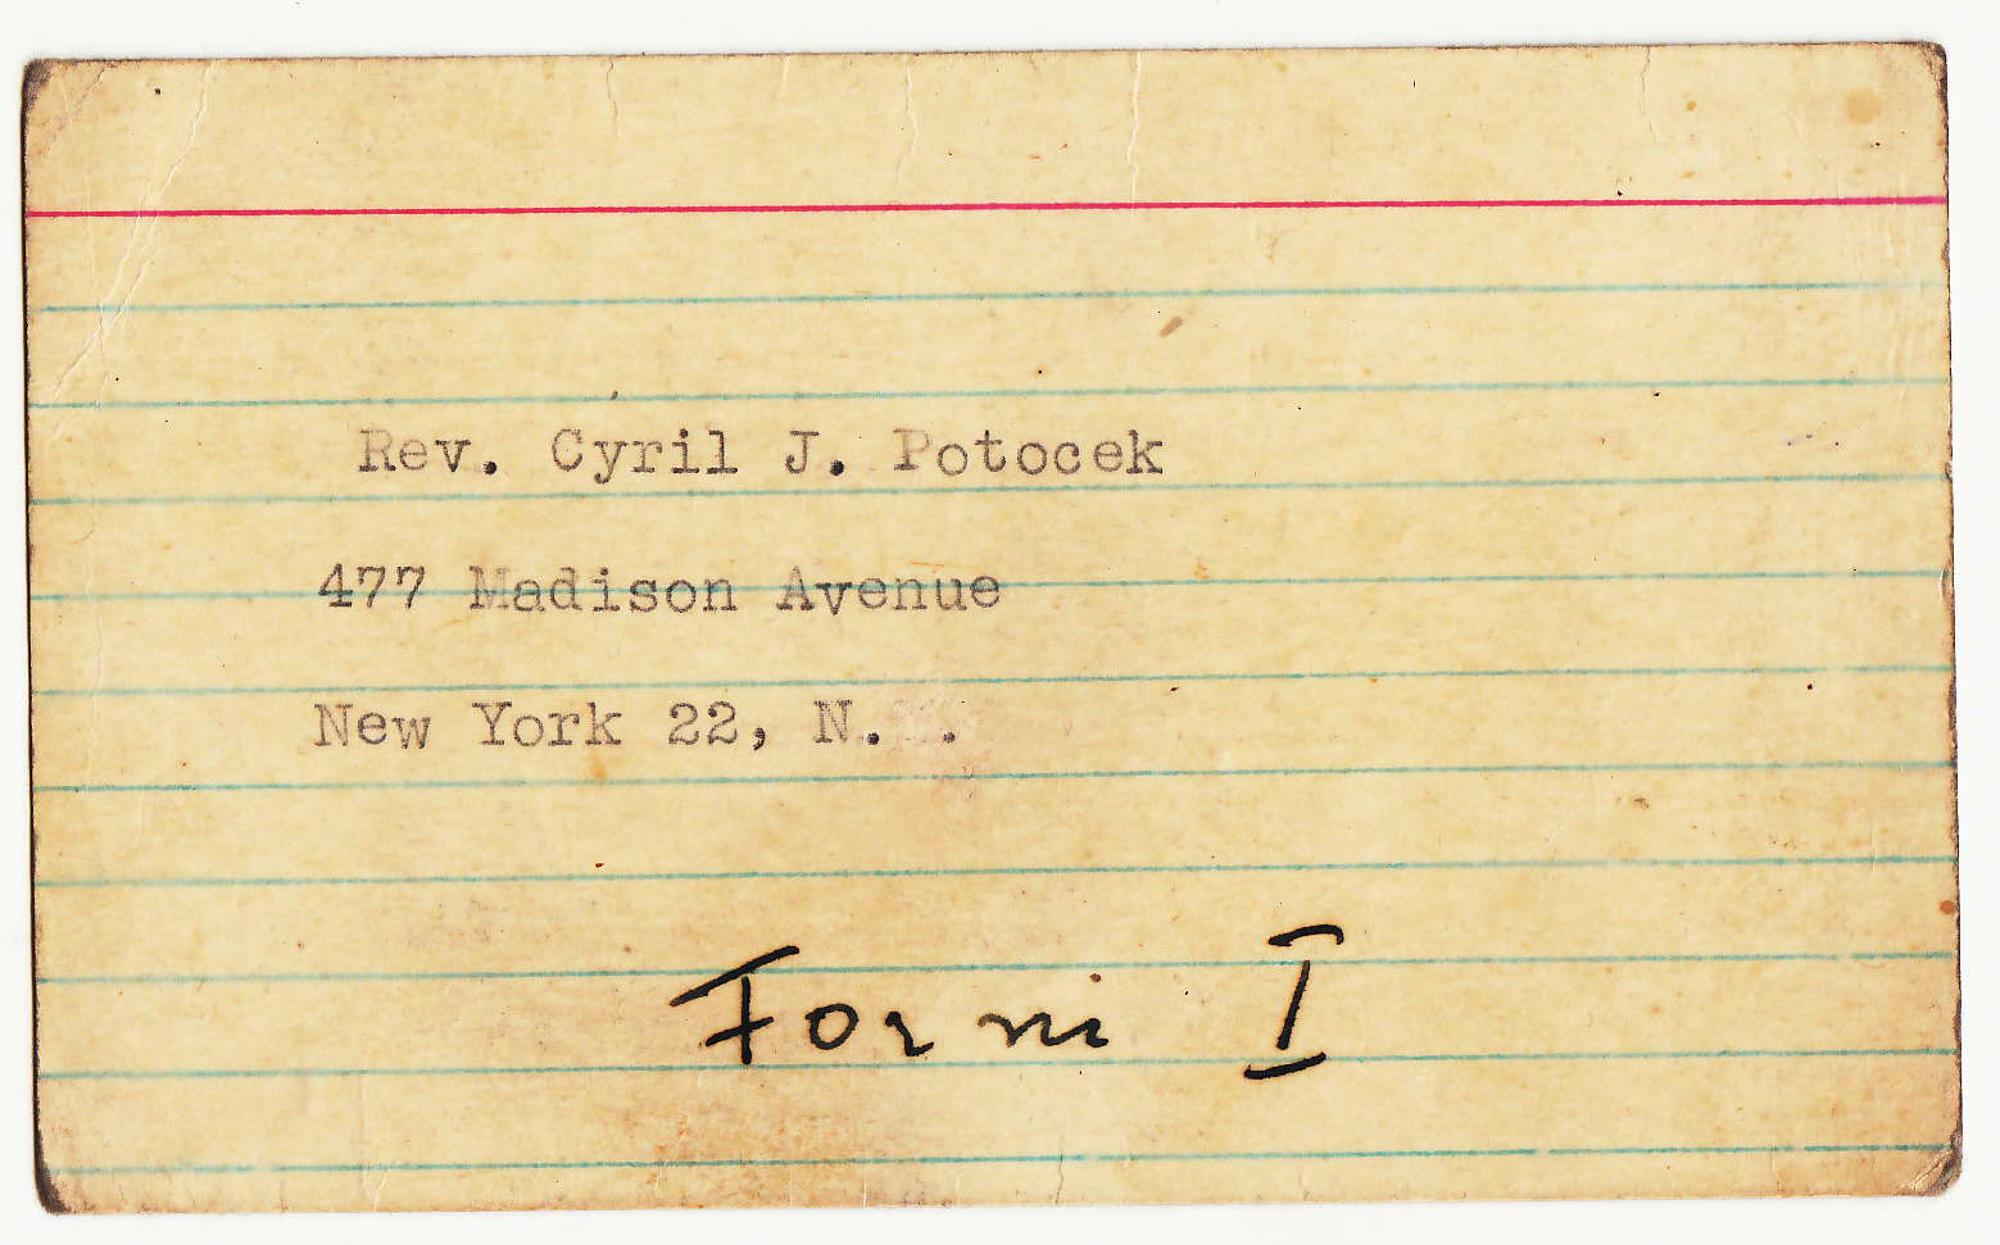 Rev. Cyril J. Potocek
477 Madison Avenue
New York 22, N. .
Form I